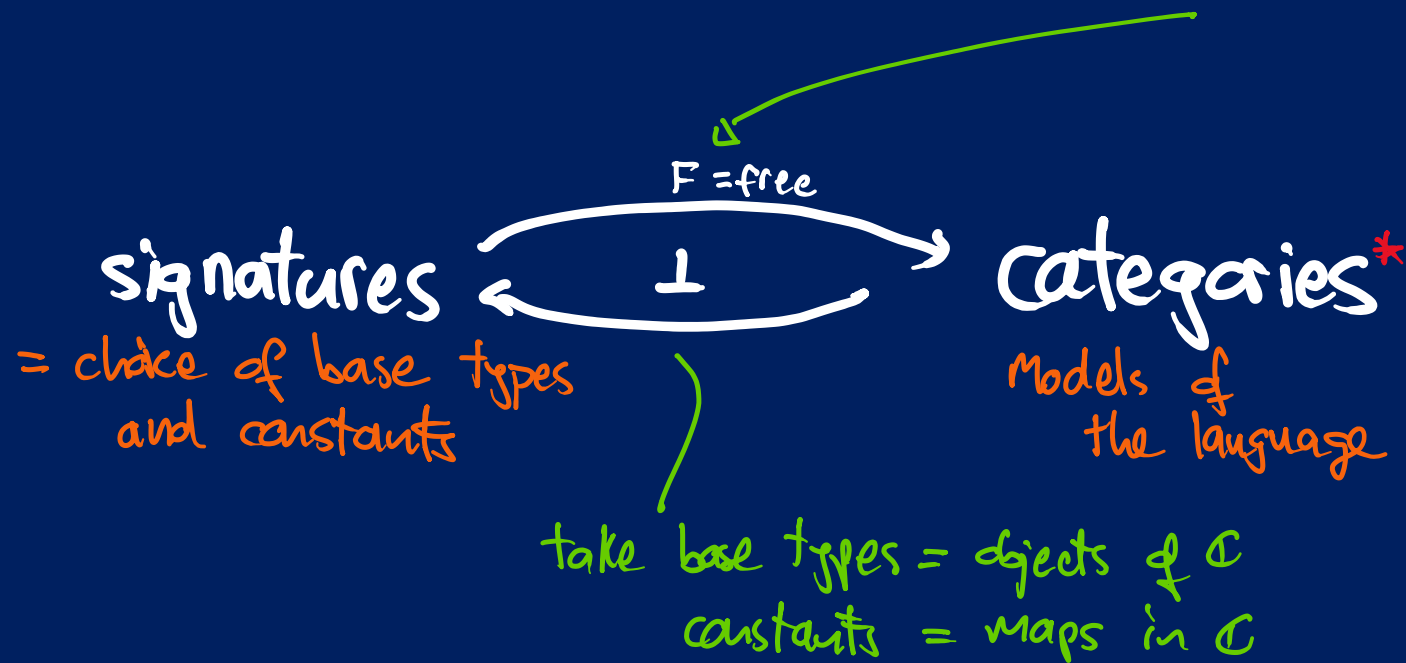 F = free
signatures ⊥ categories*
= choice of base types
and constants
Models of
the language
take base types = objects of ℂ
constants = maps in ℂ